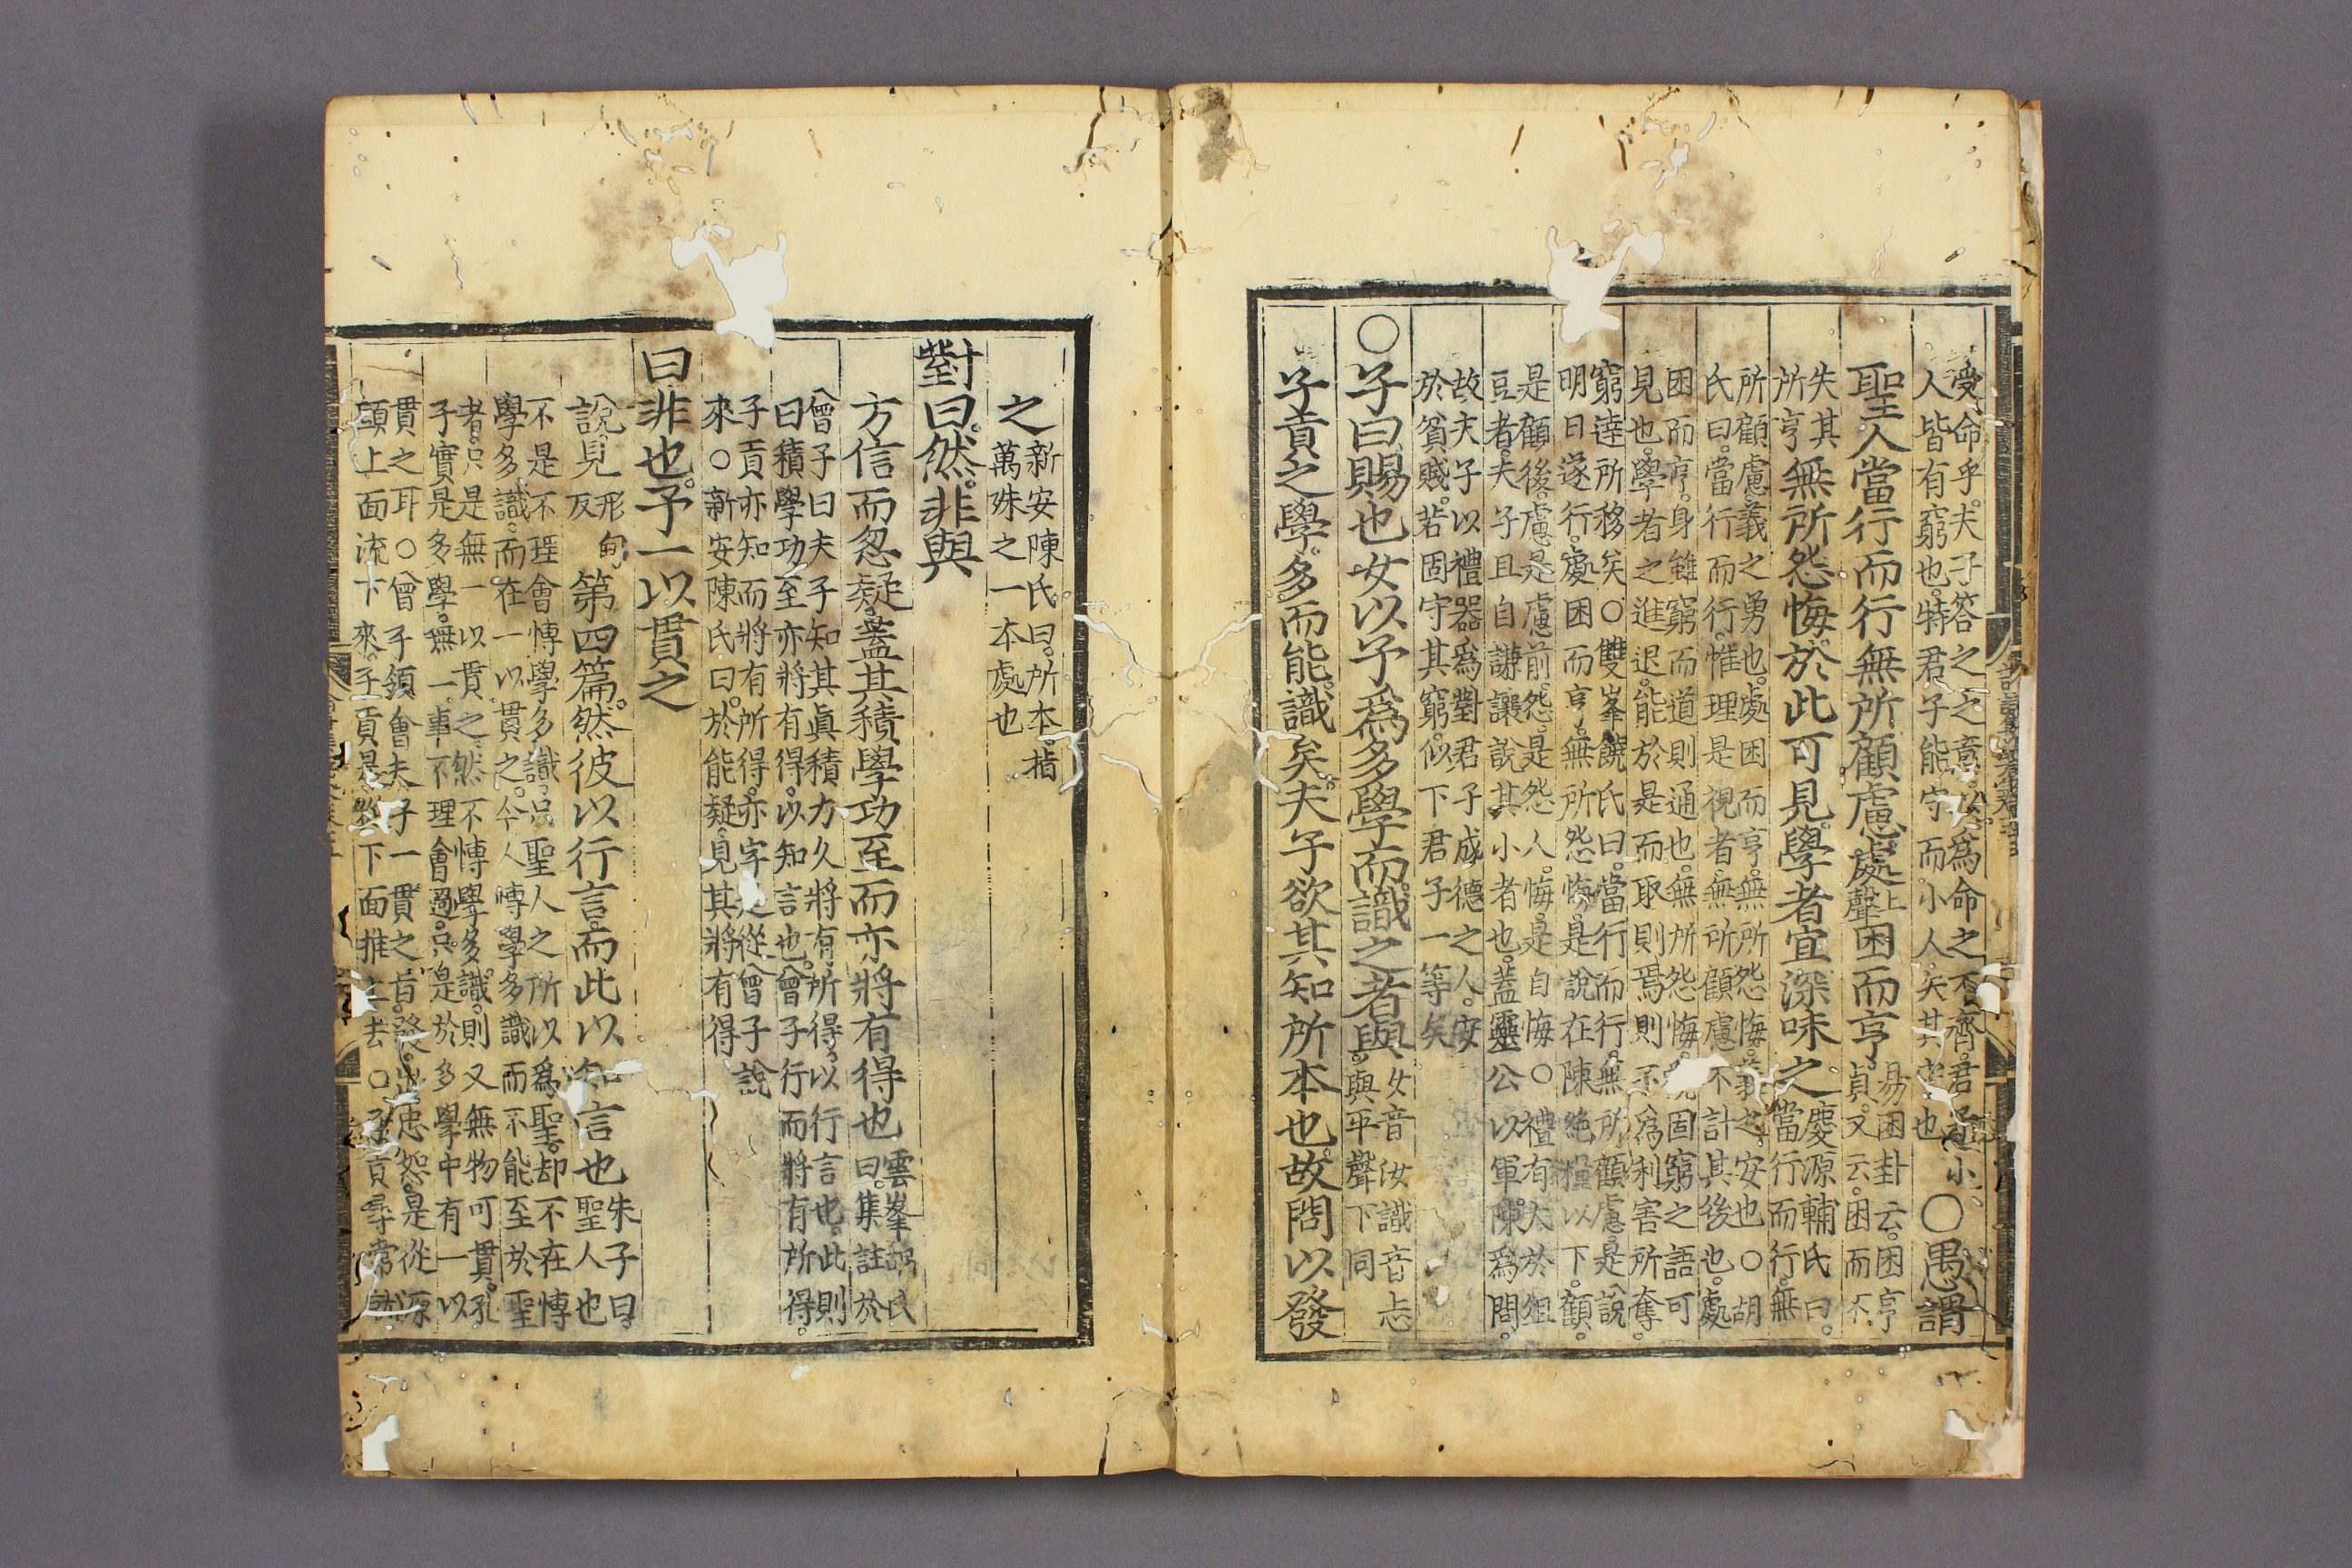 受命乎。夫子答之之意。以爲命之不齊。君子小
人皆有窮也。特君子能守而小人。失其守也○愚謂
聖人當行而行無所顧慮。處上聲困而亨。易困卦云。困亨
貞。又云。困而不
失其
所亨無所怨悔。於此可見。學者宜深味之慶源輔氏曰。
當行而行。無
所顧慮。義之勇也。處困而亨。無所怨悔。義之安也○胡
氏曰。當行而行。惟理是視者。無所顧慮不計其後也。處
困而亨。身雖窮而道則通也。無所怨悔。固窮之語可
見也。學者之進退。能於是而取則焉則不爲利害所奪。
窮達所移矣○雙峯饒氏曰。當行而行。無所顧慮。是說
明日遂行。處困而亨。無所怨悔。是說在陳絕糧以下。顧。
是顧後。慮是慮前。怨。是怨人。悔。是自悔○禮有大於俎
豆者。夫子且自謙讓說其小者也。蓋靈公以軍陳爲問。
故夫子以禮器爲對君子成德之人。安
於貧賤。若固守其窮。似下君子一等矣
○子曰賜也女以予爲多學而識之者與。女音汝識音志
與平聲下同
子貢之學。多而能識矣。夫子欲其知所本也。故問以發
之新安陳氏曰。所本。指
萬殊之一本處也
對曰。然。非與
方信而忽疑。蓋其積學功至而亦將有得也雲峯胡氏
曰。集註於
曾子曰夫子知其眞積力久將有所得。以行言也。此則
曰積學功至亦將有得。以知言也。曾子行而將有所得。
子貢亦知而將有所得。亦字是從曾子說
來○新安陳氏曰。於能疑。見其將有得
曰非也。予一以貫之
說見形甸
反第四篇。然彼以行言。而此以知言也朱子曰。
聖人也
不是不理會博學多識。只聖人之所以爲聖。却不在博
學多識。而在一以貫之。今人博學多識而不能至於聖
者。只是無一以貫之。然不博學多識。則又無物可貫。孔
子實是多學。無一事不理會過。只是於多學中有一以
貫之耳○曾子領會夫子一貫之旨。發出忠恕。是從源
頭上面流下來。子貢是從下面推上去○子貢尋常